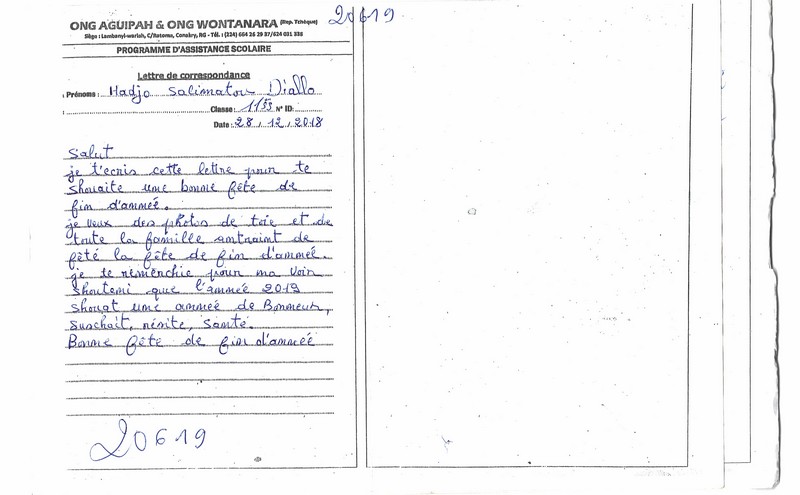 20619
ONG AGUIPAH & ONG WONTANARA (Rep. Tchèque)
Siège : Lambanyi-wariah, C/Ratoma, Conakry, RG - Tél. : (224) 664 26 29 37/624 031 338
PROGRAMME D'ASSISTANCE SCOLAIRE
Lettre de correspondance
Prénoms : Hadja Salimatou Diallo
Classe : 11 SS N° ID:
Date : 28, 12, 2018
Salut
je t'ecris cette lettre pour te
shouaite une bonne fête de
fin d'ammeé.
je veux des photos de toie et de
toute la famille antraint de
fêté la fête de fin d'ammeé.
je te remerchie pour ma voir
shoutemi que l'ammeé 2019
shouat une ammeé de Bonneur,
sunchait, réusite, santé.
Bonne fête de fin d'ammeé
20619